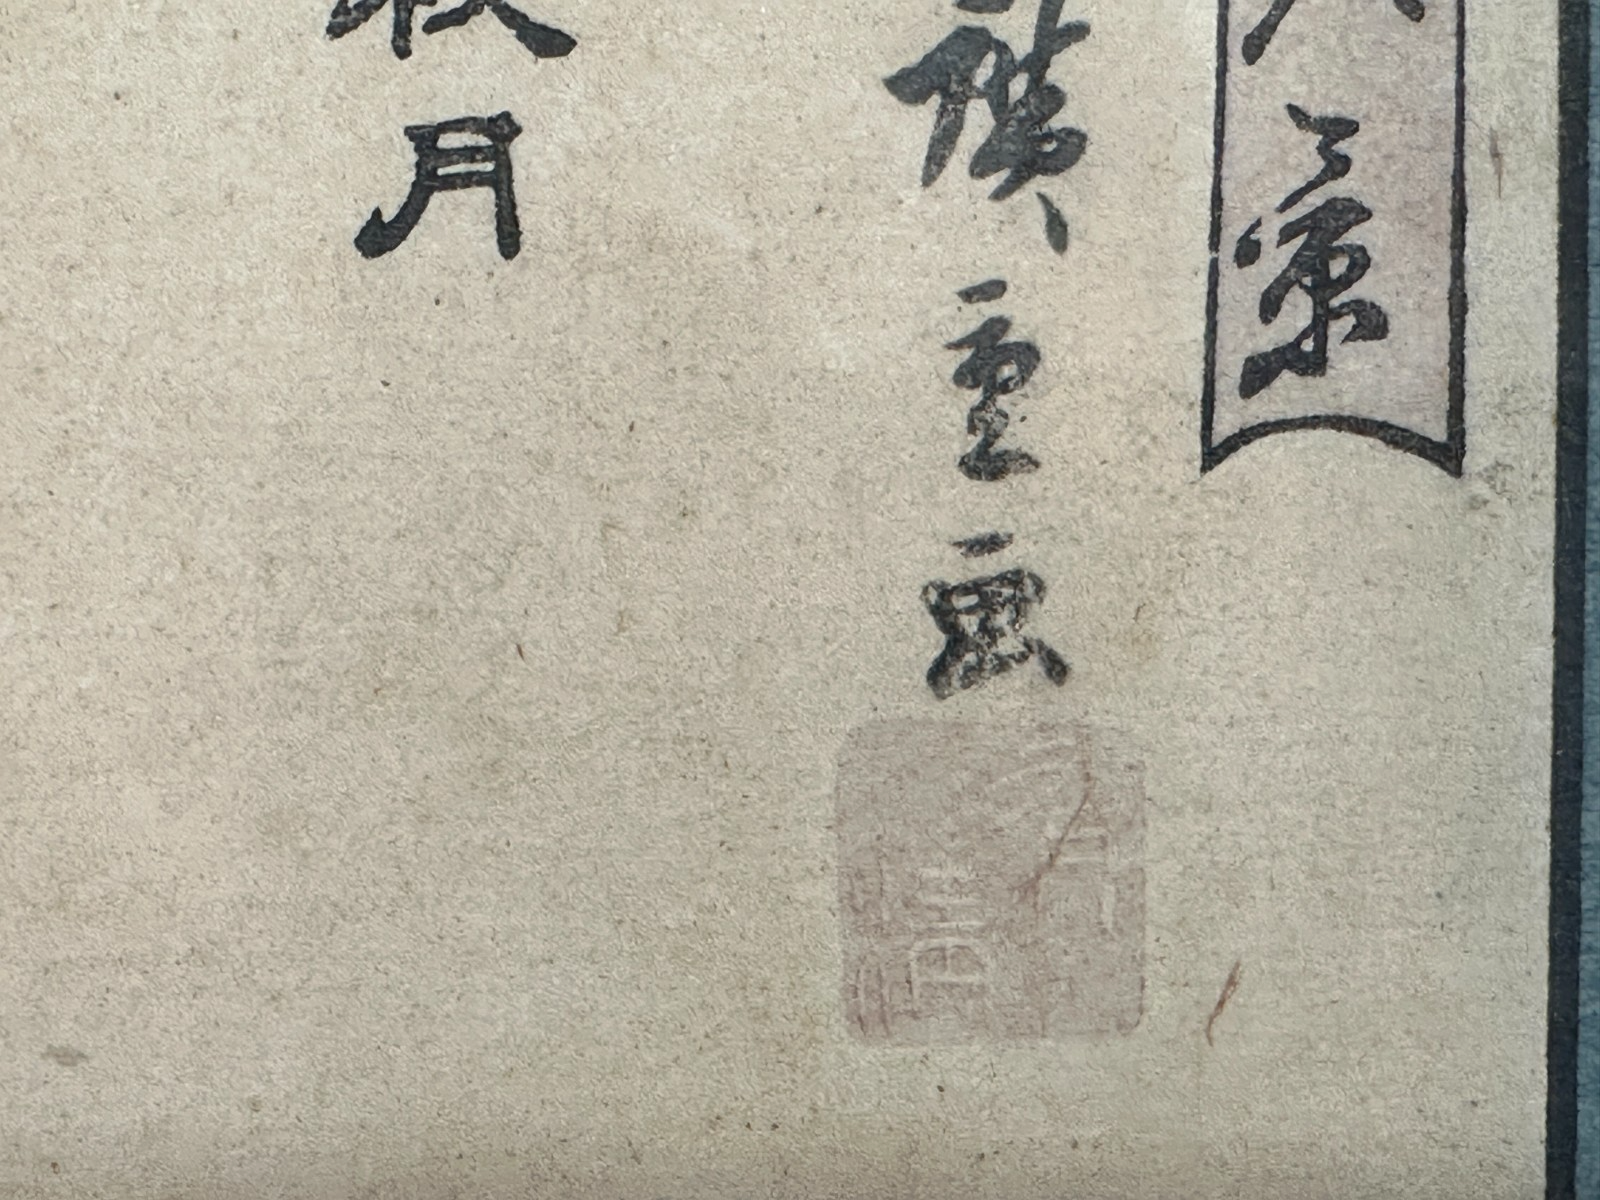 八景
廣重画
秋月